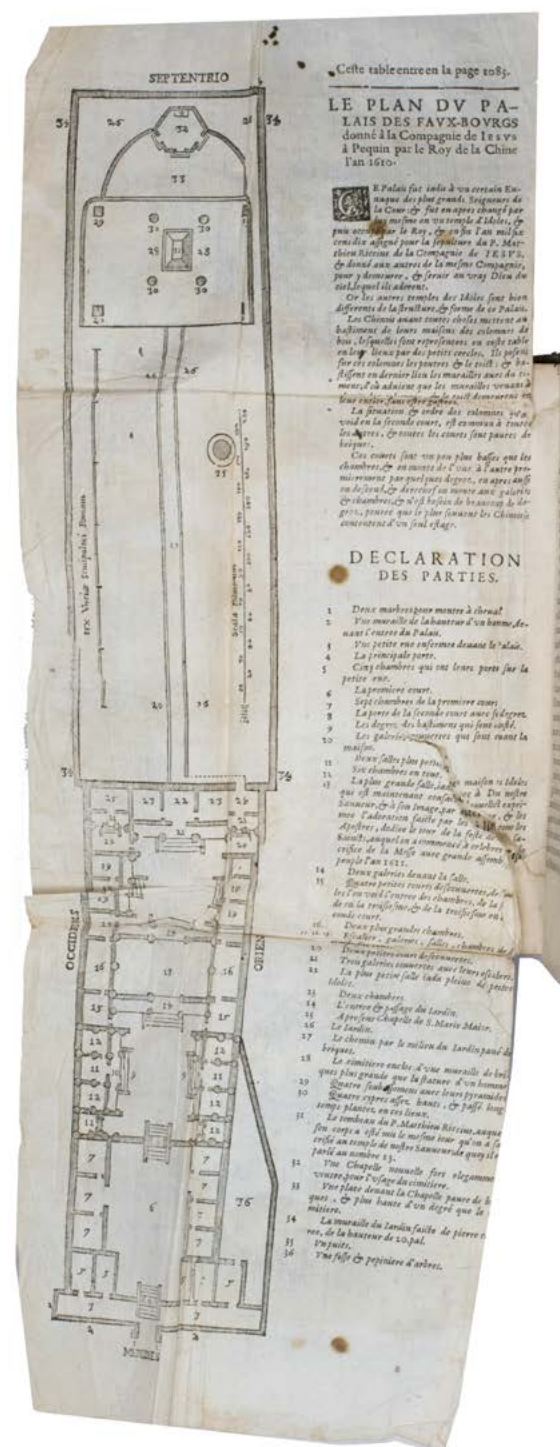 SEPTENTRIO
Ceste table entre en la page 1085.
LE PLAN DV PA-
LAIS DES FAVX-BOVRGS
donné à la Compagnie de IESVS
à Pequin par le Roy de la Chine
l'an 1610.
CE Palais fut iadis à vn certain Eu-
nuque des plus grands Seigneurs de
la Cour, & fut en apres changé par
luy mesme en vn temple d'Idoles, &
puis par le Roy, & en fin l'an mil six
cens dix assigné pour la sepulture du P. Mat-
thieu Riccius de la Compagnie de IESVS,
& donné aux autres de la mesme Compagnie,
pour y demeurer, & seruir au vray Dieu du
ciel, lequel ils adorent.
Or les autres temples des Idoles sont bien
differents de la structure, & forme de ce Palais.
Les Chinois auant toutes choses mettent au
bastiment de leurs maisons des colomnes de
bois, lesquelles sont representees en ceste table
en leur lieux par des petits cercles. Ils posent
sur ces colomnes les poutres & le toict: & ba-
stissent en dernier lieu les murailles auec du ci-
ment, d'où aduient que les murailles venant à
le toict demeurent en
leur entier, sans estre
La situation & ordre des colomnes qu'on
void en la seconde court, est commun à toutes
les autres, & toutes les cours sont pauees de
briques.
Ces courts sont vn peu plus basses que les
chambres, & on monte de l'vne à l'autre pre-
mierement par quelques degrez, en apres aussi
on descend, & derechef on monte aux galeries
& chambres, & n'est besoin de beaucoup de de-
grez, pource que le plus souuent les Chinois
contentent d'vn seul estage.
DECLARATION
DES PARTIES.
1 Deux marbres pour monter à cheual
2 Vne muraille de la hauteur d'vn homme, de-
uant l'entree du Palais.
3 Vne petite rue enfermee deuant le Palais.
4 La principale porte.
5 Cinq chambres qui ont leurs porte sur la
petite rue.
6 La premiere court.
7 Sept chambres de la premiere court
8 La porte de la seconde court auec ses degrez
9 Les degrez des bastiments qui sont costé.
10 Les galeries couuertes qui sont auant la
maison.
11 Deux salles plus petites
12 Six chambres en tout.
13 La plus grande salle, maison Idoles
qui est maintenant à Dieu nostre
Sauueur, & à son Image, par & les
mee l'adoration faicte par les
Apostres, dediee le iour de la feste de
Saincts, auquel on a commencé à celebrer
crifice de la Messe auec grande assemb
peuple l'an 1611.
14 Deux galeries deuant la salle.
15 Quatre petites courts descouuertes, de
les l'on void l'entree des chambres, de la
de en la troisiesme, & de la troisiesme en
conde court.
16 Deux plus grandes chambres.
Escalier, galeries, salles, chambres de
20 Deux petites cours descouuertes.
21 Trois galeries couuertes auec leurs escaliers.
22 La plus petite salle iadis pleine de petites
Idoles.
23 Deux chambres
24 L'entree & passage du Iardin.
25 A present Chapelle de S. Marie Maior.
26 Le Iardin.
27 Le chemin par le milieu du Iardin paué de
briques.
28 Le cimitiere enclos d'vne muraille de bri-
ques plus grande que la stature d'vn homme
29 Quatre auec leurs pyramides
30 Quatre cypres assez hauts, & passé long
temps plantez en ces lieux.
31 Le tombeau du P. Matthieu Riccius, auque
son corps a esté mis le mesme iour qu'on a sa
crifié au temple de nostre Sauueur de quoy il e
parlé au nombre 13.
32 Vne Chapelle nouuelle fort elegamme
voutee, pour l'vsage du cimitiere.
33 Vne place deuant la Chapelle pauee de b
ques, & plus haute d'vn degré que le
mitiere.
34 La muraille du Iardin faicte de pierre
ree, de la hauteur de 20. pal.
35 Vn puits.
36 Vne fosse & pepiniere d'arbres.
OCCIDENS
ORIEN